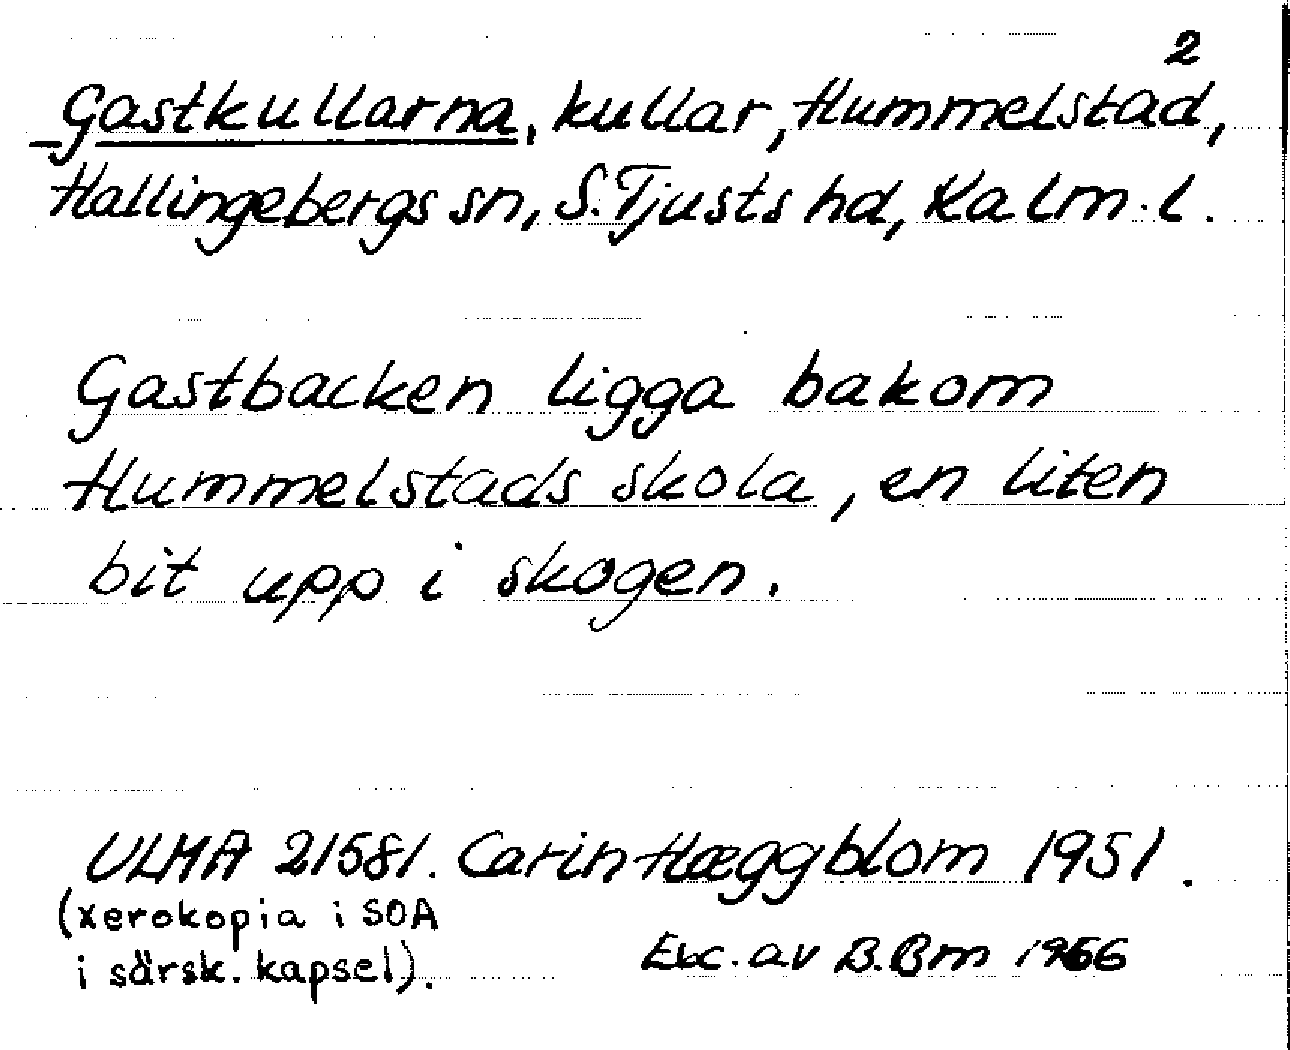 2
Gastkullarna, kullar, Hummelstad,
Hallingebergs sn, S. Tjusts hd, Kalm. l.
Gastbacken ligga bakom
Hummelstads skola, en liten
bit upp i skogen.
ULMA 21581. Carin Hæggblom 1951.
(xerokopia i SOA
i särsk. kapsel).
Exc. av B.Bm 1966